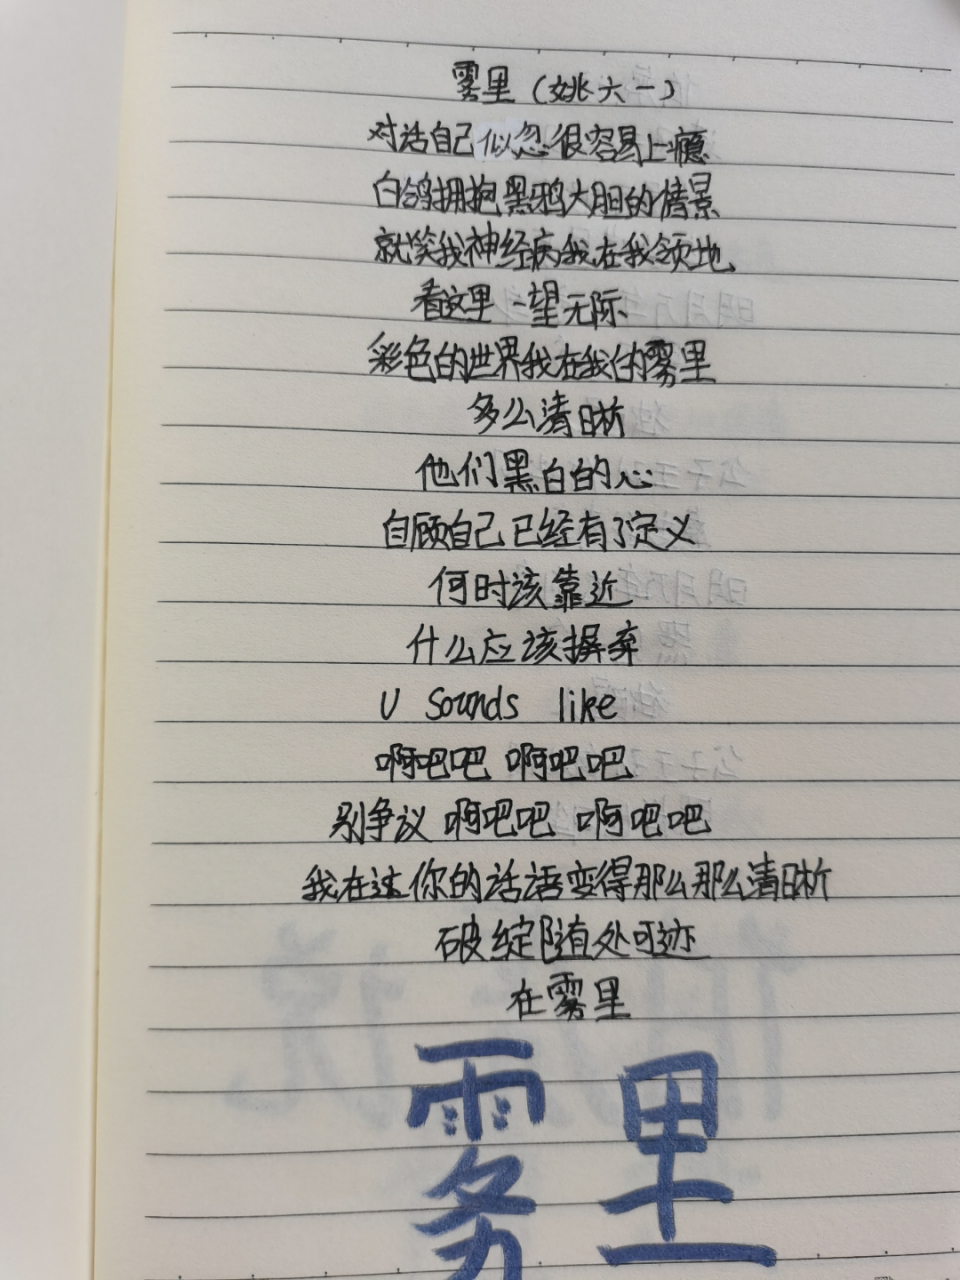 雾里（姚六一）
对话自己似忽很容易上瘾
白鸽拥抱黑鸦大胆的情景
就笑我神经病我在我领地
看这里一望无际
彩色的世界我在我的雾里
多么清晰
他们黑白的心
自顾自己已经有了定义
何时该靠近
什么应该摒弃
U Sounds like
啊吧吧 啊吧吧
别争议 啊吧吧 啊吧吧
我在这你的话语变得那么那么清晰
破绽随处可迹
在雾里
雾里